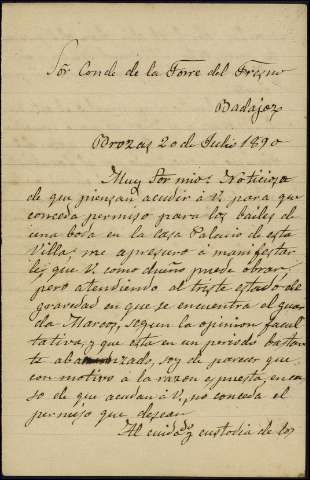 Sör Conde de la Torre del Fresno
Badajoz
Brozas 20 de Julio 1890
Muy Sor mio: Noticioso
de que piensan acudir á V. para que
conceda permiso para los bailes de
una boda en la Casa Palacio de esta
Villa; me apresuro á manifestar
les que V. como dueño puede obrar,
pero atendiendo al triste estado de
gravedad en que se encuentra el guar
da Marcos, segun la opinion facul
tativa, y que esta en un periodo bastan
te abanzado, soy de parecer que
con motivo á la razon espuesta, en ca
so de que acudan á V., no conceda el
permiso que desean.
Al cuidado y custodia de los